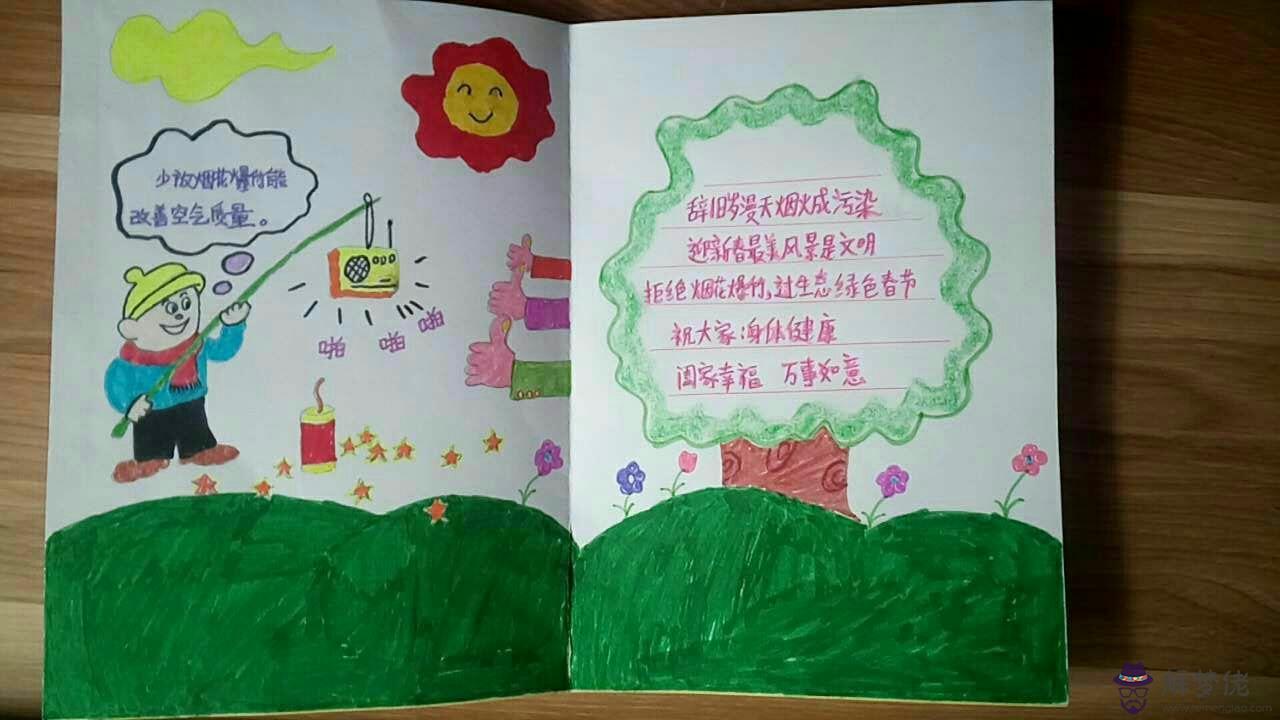 少放烟花爆竹能
改善空气质量。
啪 啪 啪
辞旧岁漫天烟火成污染
迎新春最美风景是文明
拒绝烟花爆竹,过生态绿色春节
祝大家:身体健康
阖家幸福 万事如意
解梦佬
www.jiemenglao.com